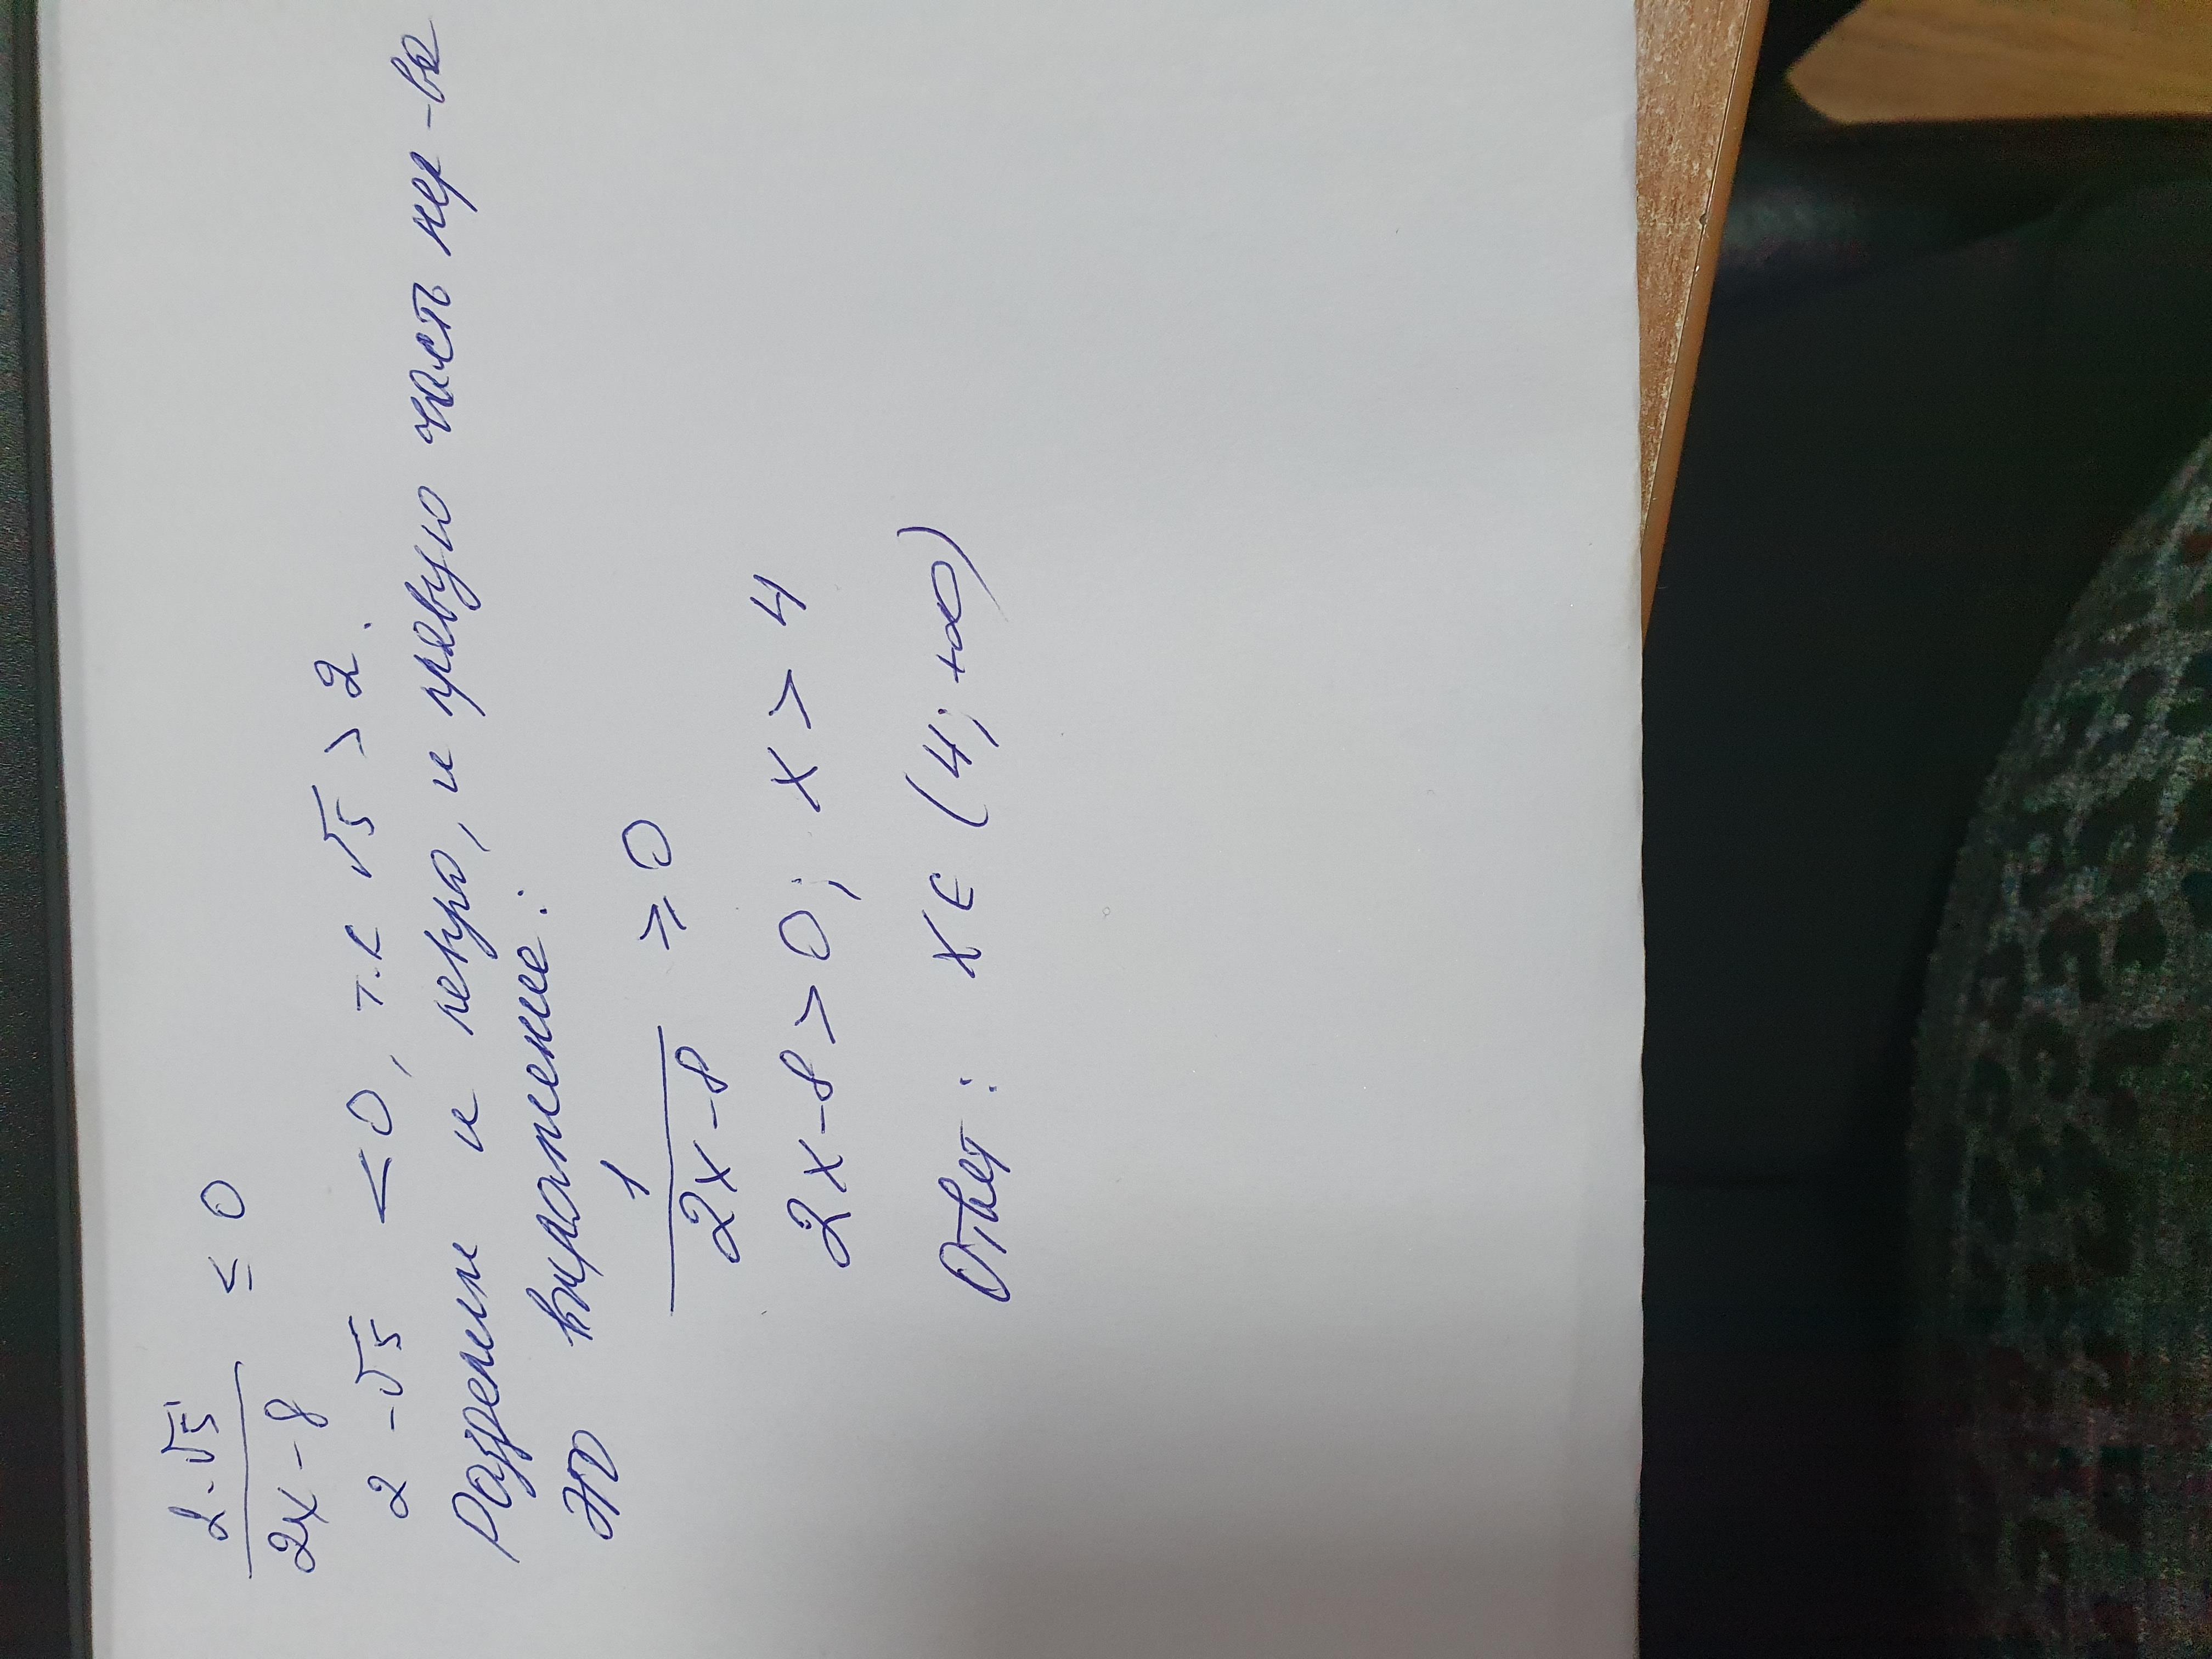 2-√5 / 2x-8 ≤ 0
2-√5 < 0, т.к √5 > 2.
Разделим и левую, и правую часть нер-ва
это выражение:
1 / 2x-8 ≥ 0
2x-8 > 0; x > 4
Ответ: x ∈ (4; +∞)